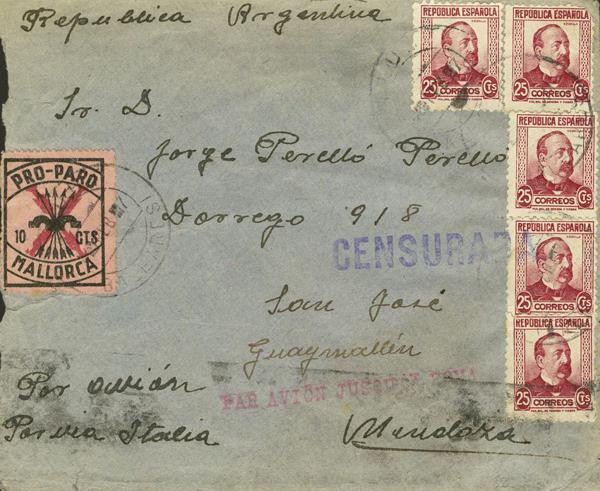 Republica Argentina
REPUBLICA ESPAÑOLA
25 CORREOS Cts
REPUBLICA ESPAÑOLA
25 CORREOS Cts
Sr. D.
Jorge Perelló Perelló
REPUBLICA ESPAÑOLA
25 CORREOS Cts
PRO-PARO
10 CTS
MALLORCA
Dorrego 918
CENSURADA
REPUBLICA ESPAÑOLA
25 CORREOS Cts
San José
Guaymallén
REPUBLICA ESPAÑOLA
25 CORREOS Cts
Por avión
PAR AVIÓN JUSQU'A
Por via Italia
Mendoza